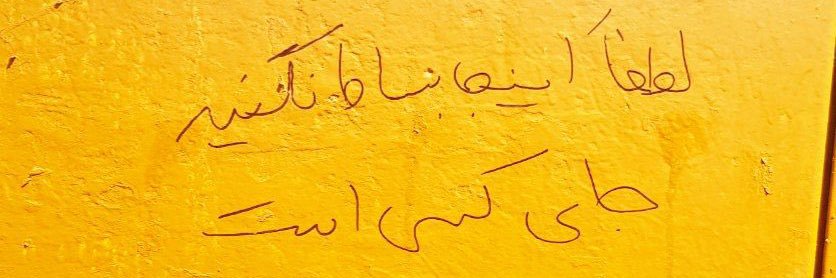 لطفاً اینجا بساط نکنید
جای کسی است